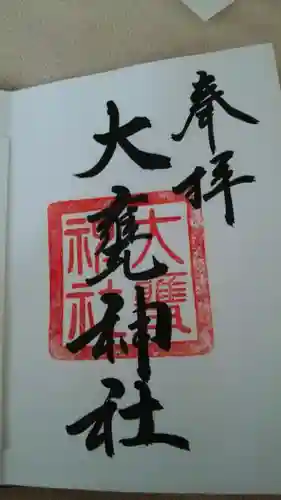 奉拝
大甕神社
大甕神社